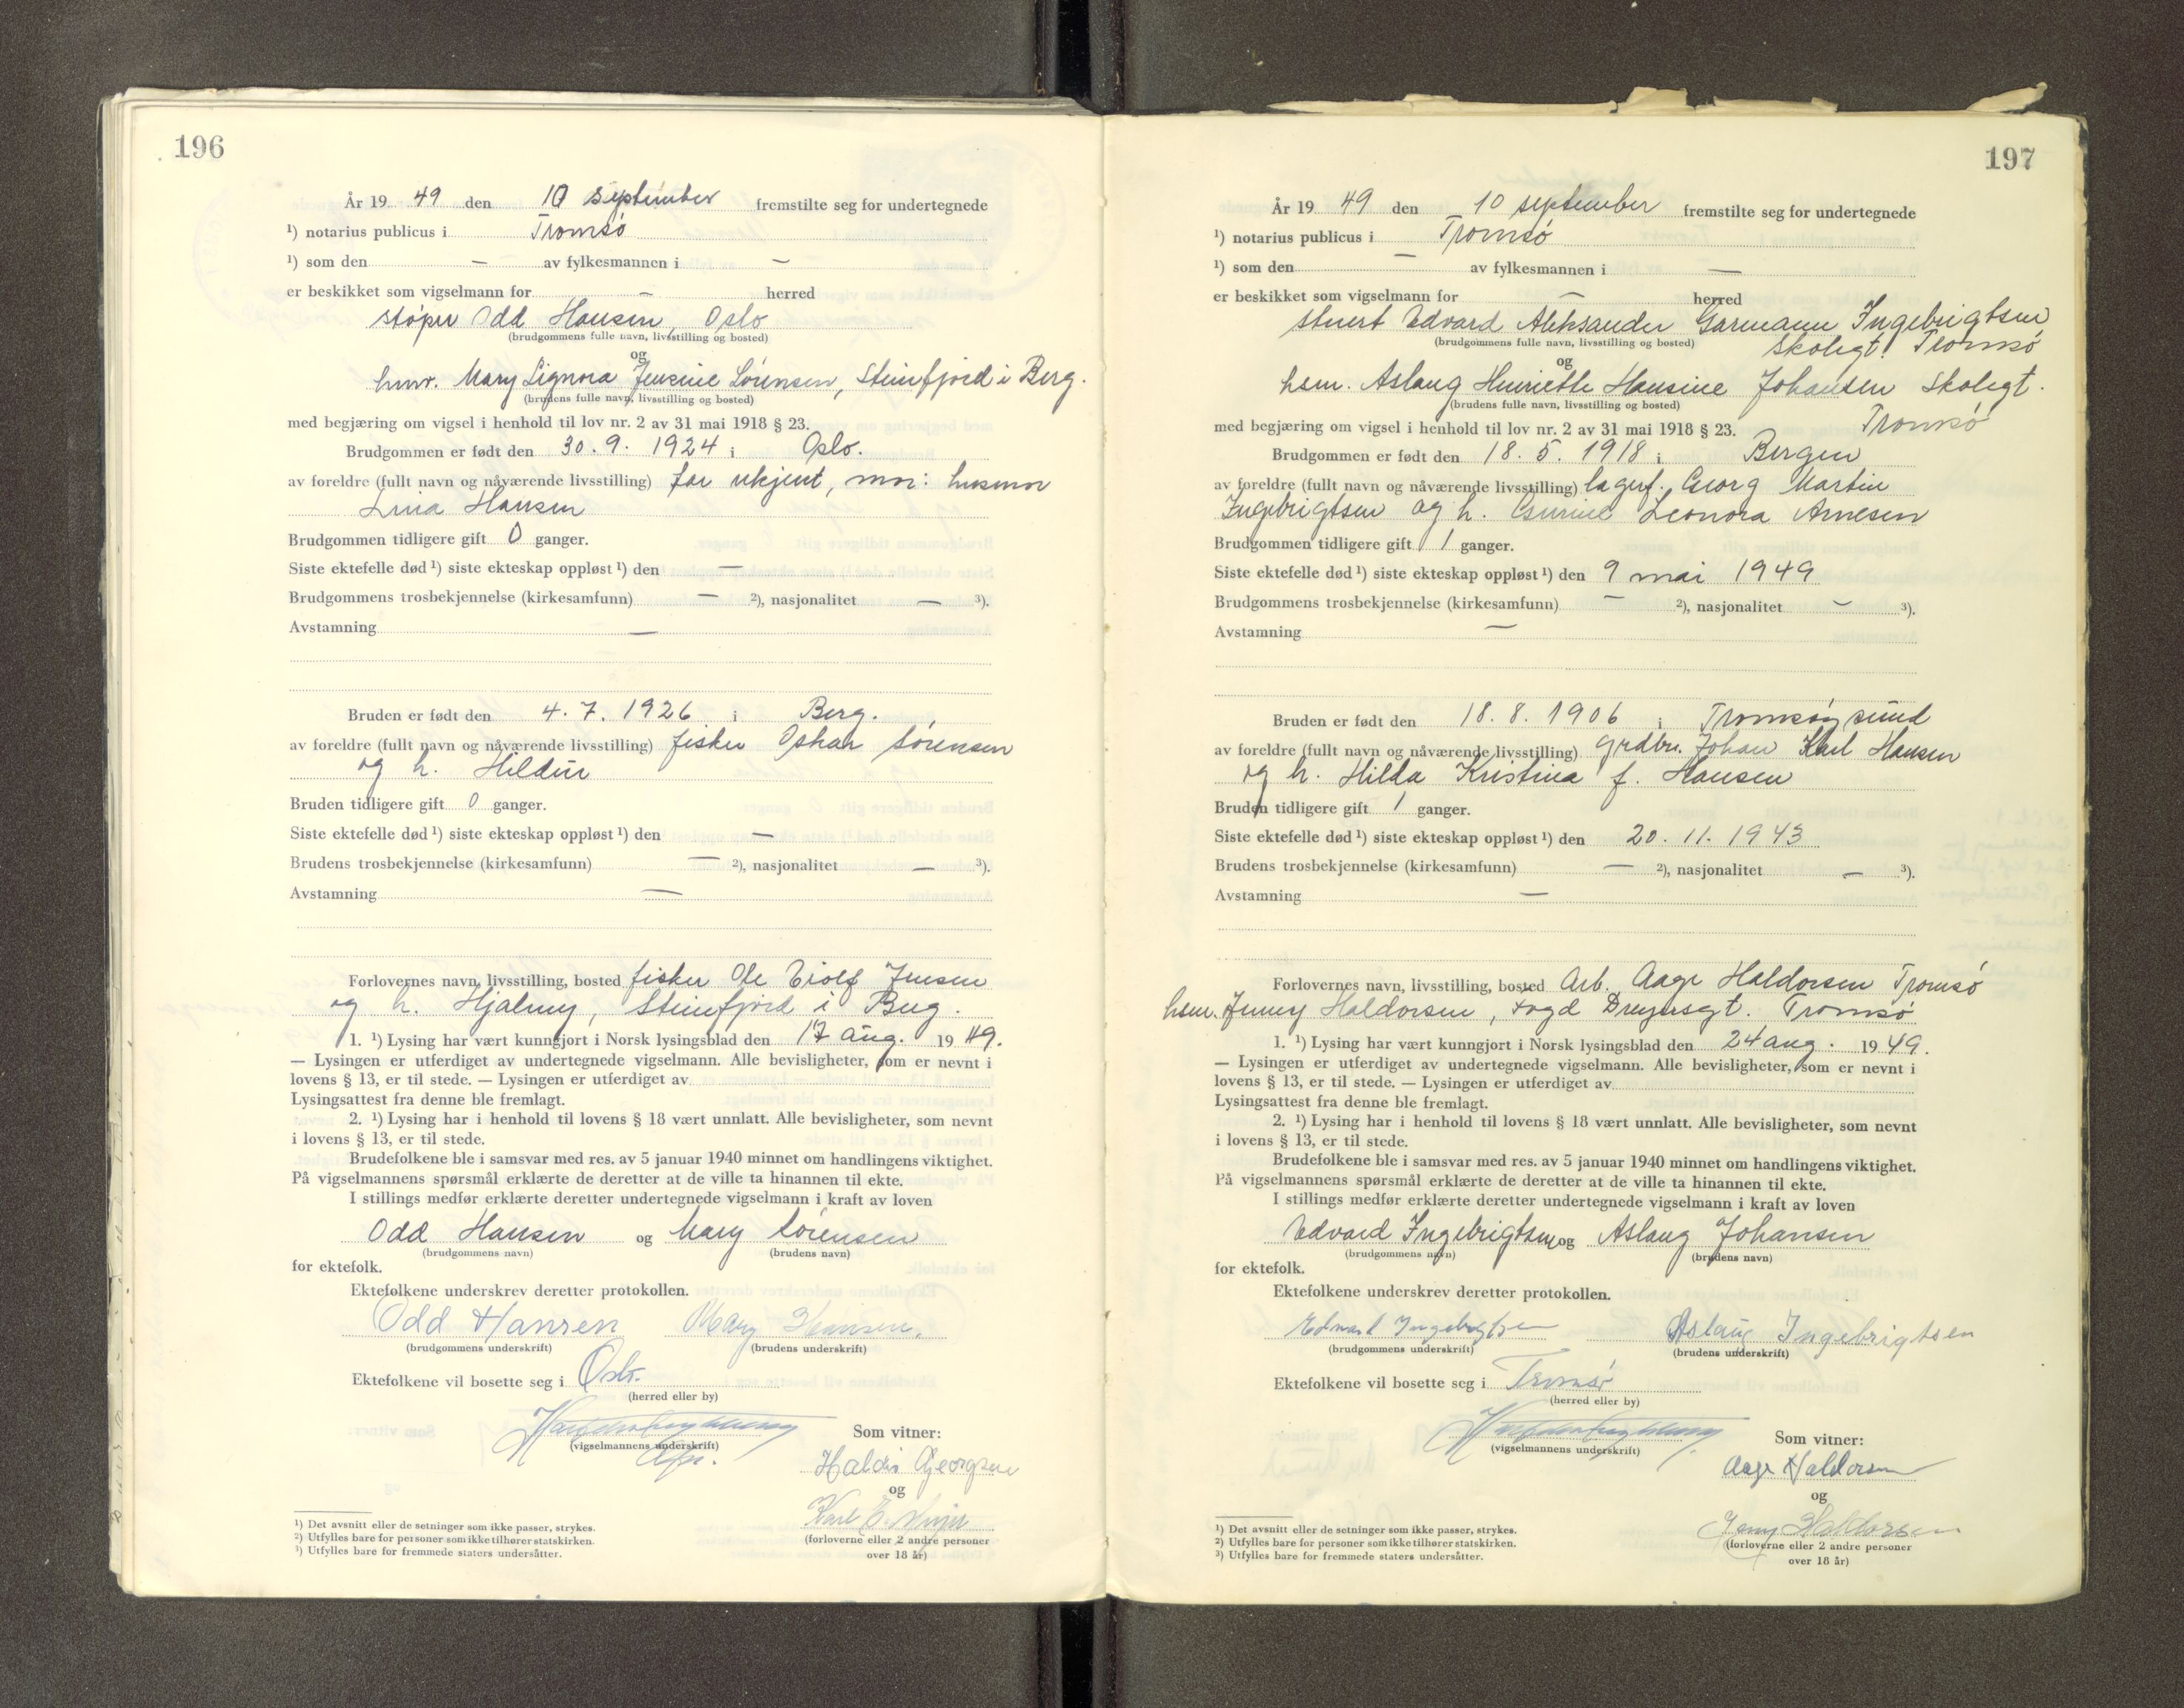 196
År 19 49 den 10 september fremstilte seg for undertegnede
¹) notarius publicus i Tromsø
¹) som den — av fylkesmannen i —
er beskikket som vigselmann for — herred
støper Odd Hansen, Oslo
(brudgommens fulle navn, livsstilling og bosted)
og
husv. Mary Signora Jensine Sørensen, Steinfjord i Berg.
(brudens fulle navn, livsstilling og bosted)
med begjæring om vigsel i henhold til lov nr. 2 av 31 mai 1918 § 23.
Brudgommen er født den 30.9.1924 i Oslo.
av foreldre (fullt navn og nåværende livsstilling) far ukjent, mor: husmor
Lina Hansen
Brudgommen tidligere gift 0 ganger.
Siste ektefelle død ¹) siste ekteskap oppløst ¹) den —
Brudgommens trosbekjennelse (kirkesamfunn) — ²), nasjonalitet — ³).
Avstamning —
Bruden er født den 4.7.1926 i Berg.
av foreldre (fullt navn og nåværende livsstilling) fisker Oskar Sørensen
og h. Hildur
Bruden tidligere gift 0 ganger.
Siste ektefelle død ¹) siste ekteskap oppløst ¹) den —
Brudens trosbekjennelse (kirkesamfunn) — ²), nasjonalitet — ³).
Avstamning —
Forlovernes navn, livsstilling, bosted fisker Ole Eiolf Jensen
og h. Hjalmy, Steinfjord i Berg.
1. ¹) Lysing har vært kunngjort i Norsk lysingsblad den 17 aug. 19 49.
— Lysingen er utferdiget av undertegnede vigselmann. Alle bevisligheter, som er nevnt i
lovens § 13, er til stede. — Lysingen er utferdiget av
Lysingsattest fra denne ble fremlagt.
2. ¹) Lysing har i henhold til lovens § 18 vært unnlatt. Alle bevisligheter, som nevnt
i lovens § 13, er til stede.
Brudefolkene ble i samsvar med res. av 5 januar 1940 minnet om handlingens viktighet.
På vigselmannens spørsmål erklærte de deretter at de ville ta hinannen til ekte.
I stillings medfør erklærte deretter undertegnede vigselmann i kraft av loven
Odd Hansen og Mary Sørensen
(brudgommens navn) (brudens navn)
for ektefolk.
Ektefolkene underskrev deretter protokollen.
Odd Hansen Mary Hansen.
(brudgommens underskrift) (brudens underskrift)
Ektefolkene vil bosette seg i Oslo.
(herred eller by)
Som vitner:
(vigselmannens underskrift)
Haldis Georgsen
og
Karl E.
(forloverne eller 2 andre personer
over 18 år)
¹) Det avsnitt eller de setninger som ikke passer, strykes.
²) Utfylles bare for personer som ikke tilhører statskirken.
³) Utfylles bare for fremmede staters undersåtter.
197
År 19 49 den 10 september fremstilte seg for undertegnede
¹) notarius publicus i Tromsø
¹) som den — av fylkesmannen i —
er beskikket som vigselmann for — herred
stuert Edvard Aleksander Garmann Ingebrigtsen
(brudgommens fulle navn, livsstilling og bosted) Skolegt. Tromsø
og
hsm. Aslaug Henriette Hansine Johansen Skolegt.
(brudens fulle navn, livsstilling og bosted)
Tromsø
med begjæring om vigsel i henhold til lov nr. 2 av 31 mai 1918 § 23.
Brudgommen er født den 18.5.1918 i Bergen
av foreldre (fullt navn og nåværende livsstilling) lagerf. Georg Martin
Ingebrigtsen og h. Leonora Arnesen
Brudgommen tidligere gift 1 ganger.
Siste ektefelle død ¹) siste ekteskap oppløst ¹) den 9 mai 1949
Brudgommens trosbekjennelse (kirkesamfunn) — ²), nasjonalitet — ³).
Avstamning —
Bruden er født den 18.8.1906 i Tromsøysund
av foreldre (fullt navn og nåværende livsstilling) grdbr. Johan Karl Hansen
og h. Hilda Kristina f. Hansen
Bruden tidligere gift 1 ganger.
Siste ektefelle død ¹) siste ekteskap oppløst ¹) den 20.11.1943
Brudens trosbekjennelse (kirkesamfunn) — ²), nasjonalitet — ³).
Avstamning —
Forlovernes navn, livsstilling, bosted Arb. Aage Haldorsen Tromsø
hsm. Jenny Haldorsen, Fogd Dreyersgt. Tromsø
1. ¹) Lysing har vært kunngjort i Norsk lysingsblad den 24 aug. 19 49.
— Lysingen er utferdiget av undertegnede vigselmann. Alle bevisligheter, som er nevnt i
lovens § 13, er til stede. — Lysingen er utferdiget av
Lysingsattest fra denne ble fremlagt.
2. ¹) Lysing har i henhold til lovens § 18 vært unnlatt. Alle bevisligheter, som nevnt
i lovens § 13, er til stede.
Brudefolkene ble i samsvar med res. av 5 januar 1940 minnet om handlingens viktighet.
På vigselmannens spørsmål erklærte de deretter at de ville ta hinannen til ekte.
I stillings medfør erklærte deretter undertegnede vigselmann i kraft av loven
Edvard Ingebrigtsen og Aslaug Johansen
(brudgommens navn) (brudens navn)
for ektefolk.
Ektefolkene underskrev deretter protokollen.
Edvard Ingebrigtsen Aslaug Ingebrigtsen
(brudgommens underskrift) (brudens underskrift)
Ektefolkene vil bosette seg i Tromsø
(herred eller by)
Som vitner:
(vigselmannens underskrift)
Aage Haldorsen
og
Jenny Haldorsen
(forloverne eller 2 andre personer
over 18 år)
¹) Det avsnitt eller de setninger som ikke passer, strykes.
²) Utfylles bare for personer som ikke tilhører statskirken.
³) Utfylles bare for fremmede staters undersåtter.